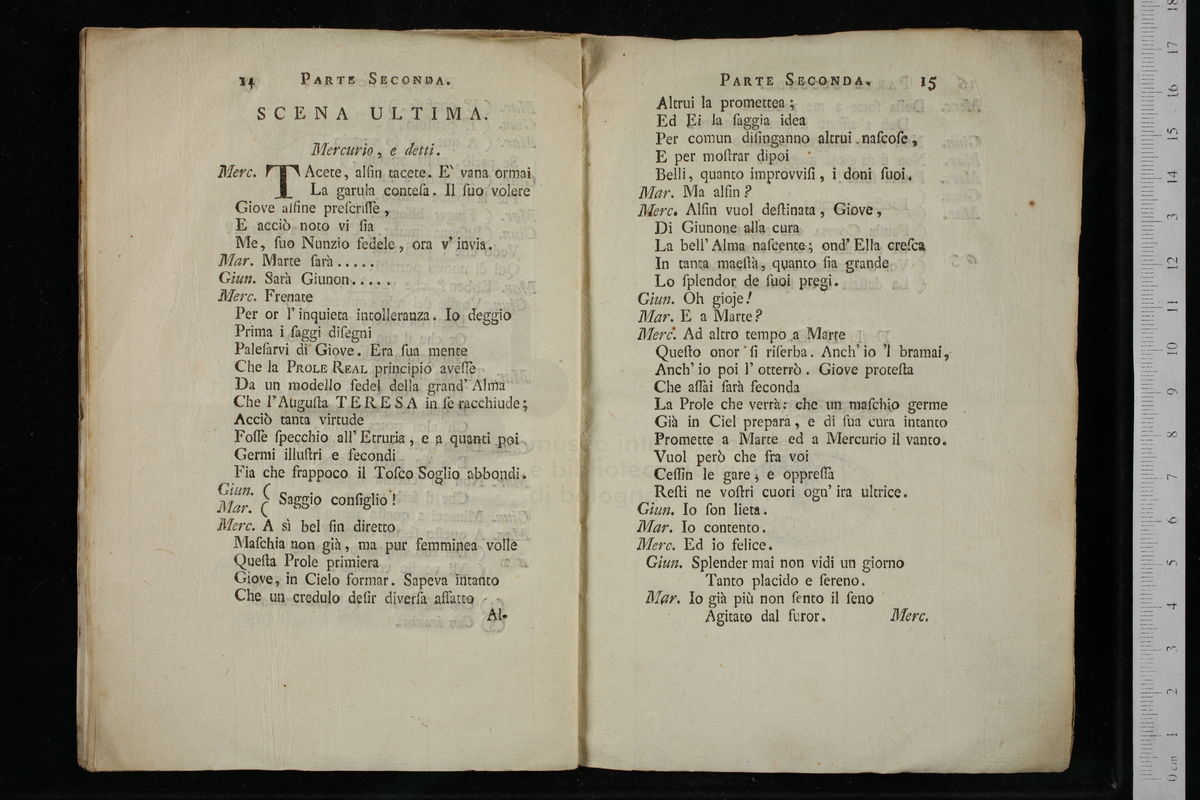 14 PARTE SECONDA.
SCENA ULTIMA.
Mercurio, e detti.
Merc. TAcete, alfin tacete. E' vana ormai
La garula conteſa. Il ſuo volere
Giove alfine preſcriſſe,
E acciò noto vi ſia
Me, ſuo Nunzio fedele, ora v'invia.
Mar. Marte ſarà.....
Giun. Sarà Giunon.....
Merc. Frenate
Per or l'inquieta intolleranza. Io deggio
Prima i ſaggi diſegni
Paleſarvi di Giove. Era ſua mente
Che la PROLE REAL principio aveſſe
Da un modello fedel della grand'Alma
Che l'Auguſta TERESA in ſe racchiude;
Acciò tanta virtude
Foſſe ſpecchio all'Etruria, e a quanti poi
Germi illuſtri e fecondi
Fia che frappoco il Toſco Soglio abbondi.
Giun. (
Mar. ( Saggio conſiglio!
Merc. A sì bel fin diretto
Maſchia non già, ma pur femminea volle
Queſta Prole primiera
Giove, in Cielo formar. Sapeva intanto
Che un credulo deſir diverſa affatto
Al-
PARTE SECONDA. 15
Altrui la promettea;
Ed Ei la ſaggia idea
Per comun diſinganno altrui naſcoſe,
E per moſtrar dipoi
Belli, quanto improvviſi, i doni ſuoi.
Mar. Ma alfin?
Merc. Alfin vuol deſtinata, Giove,
Di Giunone alla cura
La bell'Alma naſcente; ond'Ella creſca
In tanta maeſtà, quanto ſia grande
Lo ſplendor de ſuoi pregi.
Giun. Oh gioje!
Mar. E a Marte?
Merc. Ad altro tempo a Marte
Queſto onor ſi riſerba. Anch'io 'l bramai,
Anch'io poi l'otterrò. Giove proteſta
Che aſſai ſarà feconda
La Prole che verrà: che un maſchio germe
Già in Ciel prepara, e di ſua cura intanto
Promette a Marte ed a Mercurio il vanto.
Vuol però che fra voi
Ceſſin le gare, e oppreſſa
Reſti ne voſtri cuori ogn'ira ultrice.
Giun. Io ſon lieta.
Mar. Io contento.
Merc. Ed io felice.
Giun. Splender mai non vidi un giorno
Tanto placido e ſereno.
Mar. Io già più non ſento il ſeno
Agitato dal furor. Merc.